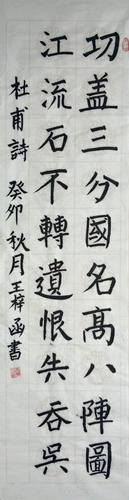 功盖三分國名髙八陣圖
江流石不轉遺恨失吞吴
杜甫詩 癸卯秋月王梓函書